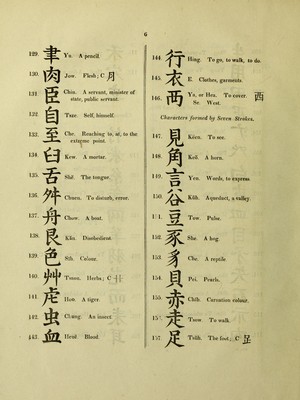 6
129. 聿 Yu. A pencil.
130. 肉 Jou. Flesh; C 月
131. 臣 Chin. A servant, minister of
state, public servant.
132. 自 Tsze. Self, himself.
133. 至 Che. Reaching to, at, to the
extreme point.
134. 臼 Kew. A mortar.
135. 舌 Shĕ. The tongue.
136. 舛 Chuen. To disturb, error.
137. 舟 Chow. A boat.
138. 艮 Kăn. Disobedient.
139. 色 Sih. Colour.
140. 艸 Tsaou. Herbs; C 艹
141. 虍 Hoo. A tiger.
142. 虫 Chung. An insect.
143. 血 Heuĕ. Blood.
144. 行 Hing. To go, to walk, to do.
145. 衣 E. Clothes, garments.
146. 襾 Ya, or Hea. To cover. 西
Se. West.
Characters formed by Seven Strokes.
147. 見 Këen. To see.
148. 角 Keŏ. A horn.
149. 言 Yen. Words, to express.
150. 谷 Kŭh. Aqueduct, a valley.
151. 豆 Tow. Pulse.
152. 豕 She. A hog.
153. 豸 Che. A reptile.
154. 貝 Pei. Pearls.
155. 赤 Chĭh. Carnation colour.
156. 走 Tsow. To walk.
157. 足 Tsŭh. The foot; C 𧾷